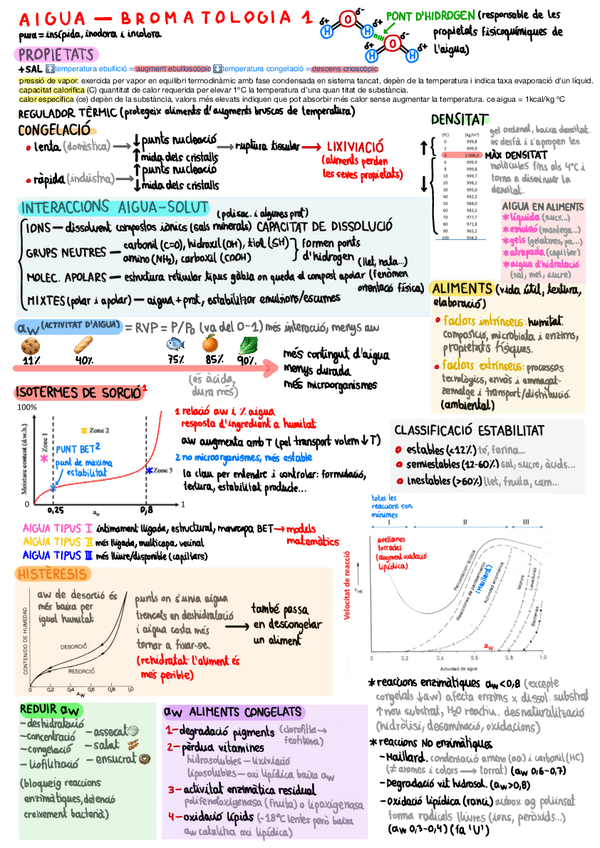 AIGUA — BROMATOLOGIA 1
pura = insípida, inodora i incolora
PONT D'HIDROGEN (responsable de les
propietats fisicoquímiques de
l'aigua)
δ+ δ- δ+
H O H
δ+ δ- δ+
H O H
PROPIETATS
+SAL ⬆️temperatura ebullició = augment ebulloscòpic ⬇️temperatura congelació = descens crioscòpic
pressió de vapor. exercida per vapor en equilibri termodinàmic amb fase condensada en sistema tancat, depèn de la temperatura i indica taxa evaporació d'un líquid.
capacitat calorífica (C) quantitat de calor requerida per elevar 1ºC la temperatura d'una quan titat de substància.
calor específica (ce) depèn de la substància, valors més elevats indiquen que pot absorbir més calor sense augmentar la temperatura. ce aigua = 1kcal/kg ºC
REGULADOR TÈRMIC (protegeix aliments d'augments bruscos de temperatura)
CONGELACIÓ
lenta (domèstica) → ↓ punts nucleació
↑ mida dels cristalls
→ ruptura tissular → LIXIVIACIÓ
(aliments perden
les seves propietats)
ràpida (indústria) → ↑ punts nucleació
↓ mida dels cristalls
DENSITAT
gel ordenat, baixa densitat.
es desfà i s'apropen les
MÀX DENSITAT
molècules fins als 4ºC i
torna a disminuir la
densitat.
INTERACCIONS AIGUA-SOLUT
(polisac. i algunes prot)
IONS — dissolvent compostos iònics (sals minerals) CAPACITAT DE DISSOLUCIÓ
GRUPS NEUTRES — carbonil (C=O), hidroxil (OH), tiol (SH)
amino (NH₂), carboxil (COOH)
formen ponts
d'hidrogen (llet, nata...)
MOLEC. APOLARS — estructura reticular tipus gàbia on queda el compost apolar (fenòmen
orientació física)
MIXTES (polar i apolar) — aigua + prot, estabilitzar emulsions/escumes
AIGUA EN ALIMENTS
* líquida (sucs...)
* emulsió (mantega...)
* gels (gelatines, pa...)
* atrapada (capil·lar)
* aigua d'hidratació
(sal, mel, sucre)
ALIMENTS (vida útil, textura,
elaboració)
factors intrínsecs: humitat.
composició, microbiata i enzims,
propietats físiques.
factors extrínsecs: processos
tecnològics, envàs i emmagat-
zematge i transport/distribució.
(ambiental)
aw (ACTIVITAT D'AIGUA) = RVP = P/P₀ (va del 0-1) més interacció, menys aw
11% 40% 75% 85% 90%
(és àcida,
dura més)
més contingut d'aigua
menys durada
més microorganismes
ISOTERMES DE SORCIÓ¹
100%
Moisture content (d.w.b.)
Zone 1
Zone 2
Zone 3
PUNT BET²
punt de màxima
estabilitat
0
0,25
aw
0,8
1
1 relació aw i % aigua
resposta d'ingredient a humitat
aw augmenta amb T (pel transport volem ↓T)
2 no microorganismes, més estable
la clau per entendre i controlar: formulació,
textura, estabilitat producte...
CLASSIFICACIÓ ESTABILITAT
estables (<12%) té, farina...
semiestables (12-60%) sal, sucre, àcids...
inestables (>60%) llet, fruita, carn...
AIGUA TIPUS I íntimament lligada, estructural, monocapa BET → models
matemàtics
AIGUA TIPUS II més lligada, multicapa, veïnal
AIGUA TIPUS III més lliure/disponible (capil·lars)
totes les
reaccions son
mínimes
I II III
avellanes
torrades
(augment oxidació
lipídica)
Velocitat de reacció
(Maillard)
aw
0,2 0,4 0,6 0,8 1,0
Actividad de agua
HISTÈRESIS
CONTENIDO DE HUMEDAD
aw de desorció és
més baixa per
igual humitat
DESORCIÓ
RESORCIÓ
0 0,2 0,4 0,6 0,8 1,0
Aw
punts on s'unia aigua
trencats en deshidratació
i aigua costa més
tornar a fixar-se.
(rehidratat l'aliment és
més perible)
→ també passa
en descongelar
un aliment
REDUIR aw
- deshidratació
- concentració
- congelació
- liofilització
- assecat
- salat
- ensucrat
(bloqueig reaccions
enzimàtiques, detenció
creixement bacterià)
aw ALIMENTS CONGELATS
1- degradació pigments (clorofil·la →
feofitina)
2- pèrdua vitamines
hidrosolubles - lixiviació
liposolubles - oxi lipídica baixa aw
3- activitat enzimàtica residual
polifenoloxigenasa (fruita) o lipoxigenasa
4- oxidació lípids (-18ºC lentes però baixa
aw catalitza oxi lipídica)
* reaccions enzimàtiques aw<0,8 (excepte
congelats ↓aw) afecta enzims x dissol. substrat
↑ nou substrat, H₂O reactiu. desnaturalització
(hidròlisi, desaminació, oxidacions)
* reaccions NO enzimàtiques
- Maillard. condensació amino (aa) i carbonil (HC)
(≠ aromes i colors → torrat) (aw 0,6-0,7)
- Degradació vit hidrosol. (aw>0,8)
- oxidació lipídica (ranci)
forma radicals lliures (ions, peròxids...)
(aw 0,3-0,4) (fa 'U')